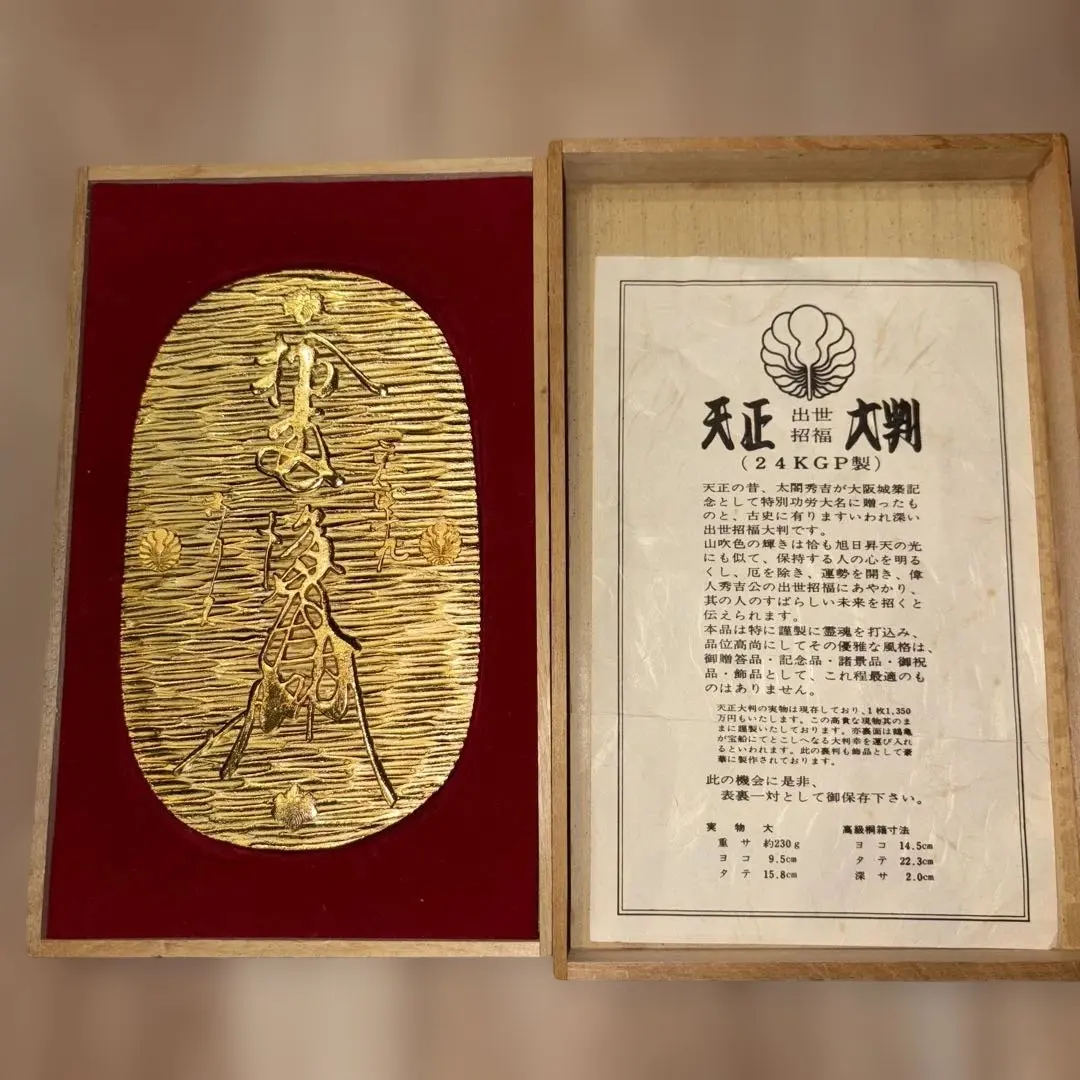 天正 出世招福 大判
(24KGP製)
天正の昔、太閤秀吉が大阪城築記
念として特別功労大名に贈ったも
のと、古史に有りますいわれ深い
出世招福大判です。
山吹色の輝きは恰も旭日昇天の光
にも似て、保持する人の心を明る
くし、厄を除き、運勢を開き、偉
人秀吉公の出世招福にあやかり、
其の人のすばらしい未来を招くと
伝えられます。
本品は特に謹製に霊魂を打込み、
品位高尚にしてその優雅な風格は、
御贈答品・記念品・諸景品・御祝
品・飾品として、これ程最適のも
のはありません。
天正大判の実物は現存しており、1枚1,350
万円もいたします。この高貴な現物其のま
まに謹製いたしております。亦裏面は鶴亀
が宝船にてとこしへなる大判幸を運び入れ
るといわれます。此の裏判も飾品として豪
華に製作されております。
此の機会に是非、
表裏一対として御保存下さい。
実物大
重サ 約230g
ヨコ 9.5cm
タテ 15.8cm
高級桐箱寸法
ヨコ 14.5cm
タテ 22.3cm
深サ 2.0cm